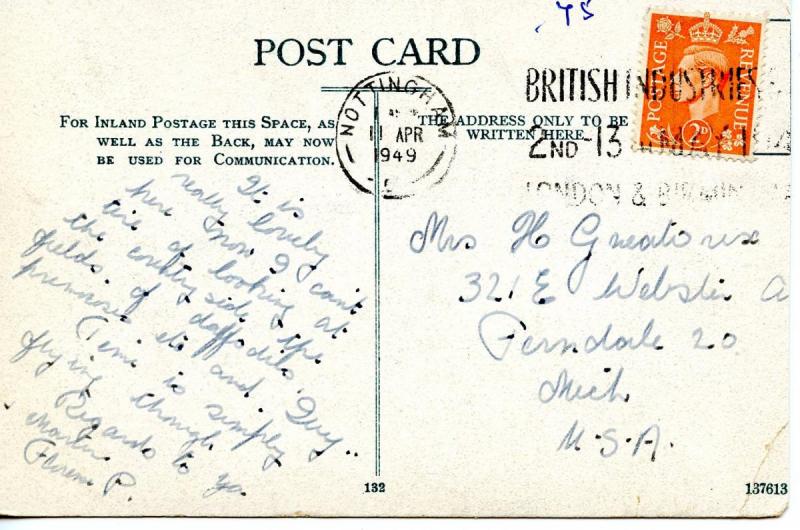 45
POST CARD
FOR INLAND POSTAGE THIS SPACE, AS
WELL AS THE BACK, MAY NOW
BE USED FOR COMMUNICATION.
THE ADDRESS ONLY TO BE
WRITTEN HERE.
NOTTINGHAM
11 APR
1949
BRITISH INDUSTRIES
2ND-13 MAY 194
LONDON & BIRMIN
POSTAGE REVENUE
2D
It is
really lovely
here now I cant
tire of looking at
the contry side, the
fields of daffodils,
primroses etc and
Time is simply
flying though.
Regards to yo
Florence P.
Mrs H Greatorex
321 E Webster A
Ferndale 20
Mich
U.S.A.
132
137613